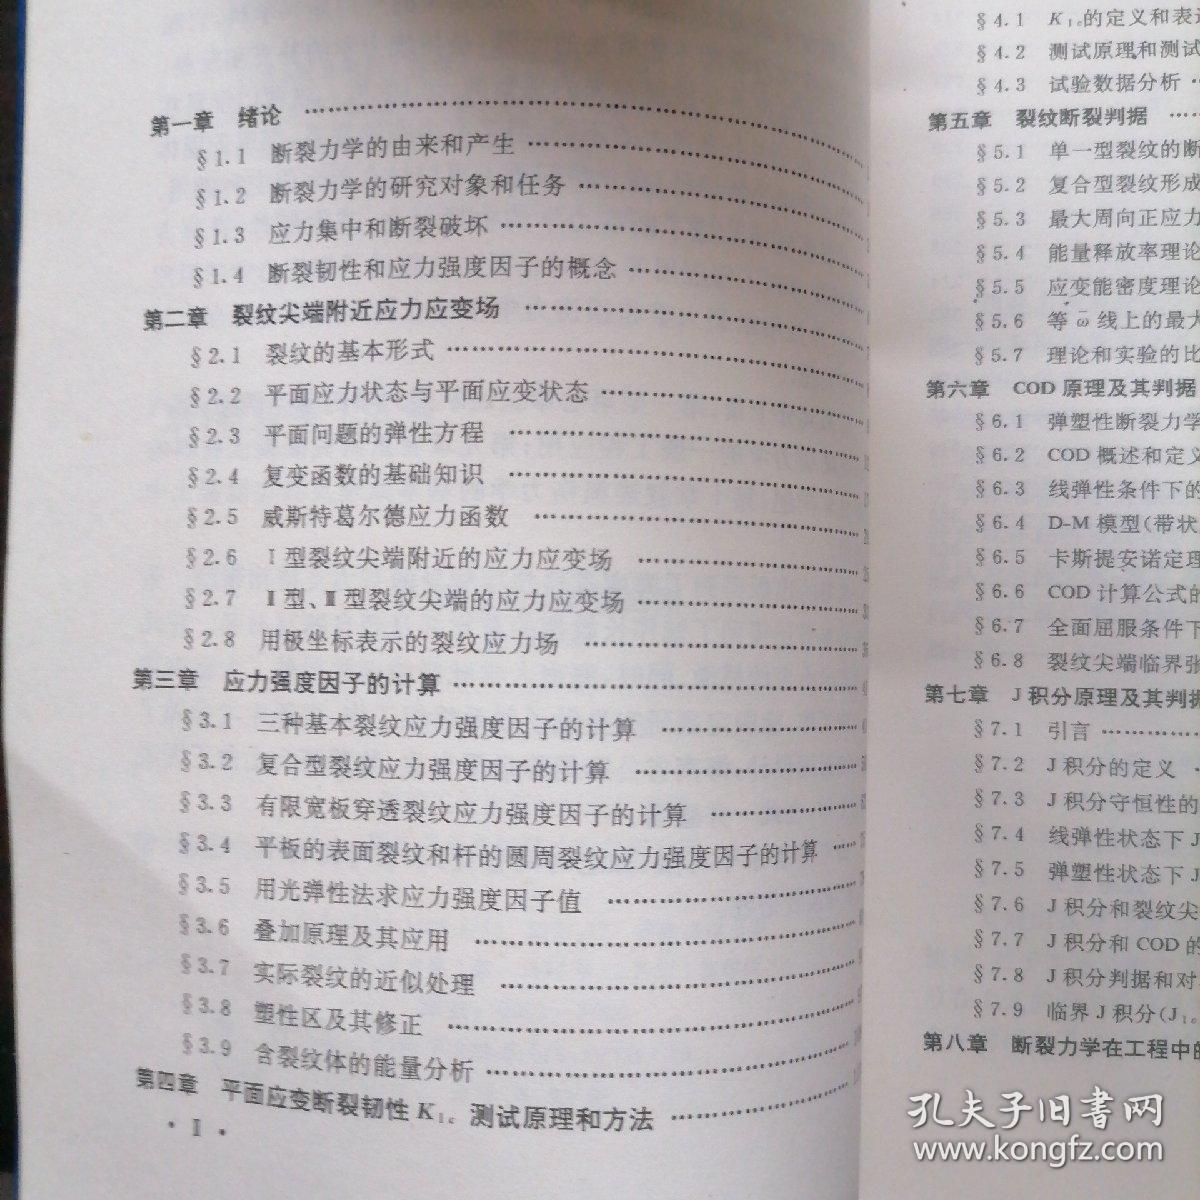 第一章 绪论 ……
§1.1 断裂力学的由来和产生 ……
§1.2 断裂力学的研究对象和任务 ……
§1.3 应力集中和断裂破坏 ……
§1.4 断裂韧性和应力强度因子的概念 ……
第二章 裂纹尖端附近应力应变场 ……
§2.1 裂纹的基本形式 ……
§2.2 平面应力状态与平面应变状态 ……
§2.3 平面问题的弹性方程 ……
§2.4 复变函数的基础知识 ……
§2.5 威斯特葛尔德应力函数 ……
§2.6 Ⅰ型裂纹尖端附近的应力应变场 ……
§2.7 Ⅱ型、Ⅲ型裂纹尖端的应力应变场 ……
§2.8 用极坐标表示的裂纹应力场 ……
第三章 应力强度因子的计算 ……
§3.1 三种基本裂纹应力强度因子的计算 ……
§3.2 复合型裂纹应力强度因子的计算 ……
§3.3 有限宽板穿透裂纹应力强度因子的计算 ……
§3.4 平板的表面裂纹和杆的圆周裂纹应力强度因子的计算 ……
§3.5 用光弹性法求应力强度因子值 ……
§3.6 叠加原理及其应用 ……
§3.7 实际裂纹的近似处理 ……
§3.8 塑性区及其修正 ……
§3.9 含裂纹体的能量分析 ……
第四章 平面应变断裂韧性K₁c 测试原理和方法 ……
· Ⅱ ·
§4.1 K₁c的定义和表达
§4.2 测试原理和测试
§4.3 试验数据分析 …
第五章 裂纹断裂判据 ……
§5.1 单一型裂纹的断
§5.2 复合型裂纹形成
§5.3 最大周向正应力
§5.4 能量释放率理论
§5.5 应变能密度理论
§5.6 等ω̄线上的最大
§5.7 理论和实验的比
第六章 COD原理及其判据
§6.1 弹塑性断裂力学
§6.2 COD概述和定义
§6.3 线弹性条件下的
§6.4 D-M模型(带状
§6.5 卡斯提安诺定理
§6.6 COD计算公式的
§6.7 全面屈服条件下
§6.8 裂纹尖端临界张
第七章 J积分原理及其判据
§7.1 引言 ……
§7.2 J积分的定义 …
§7.3 J积分守恒性的
§7.4 线弹性状态下J
§7.5 弹塑性状态下J
§7.6 J积分和裂纹尖
§7.7 J积分和COD的
§7.8 J积分判据和对
§7.9 临界J积分(J₁c
第八章 断裂力学在工程中的
孔夫子旧书网
www.kongfz.com